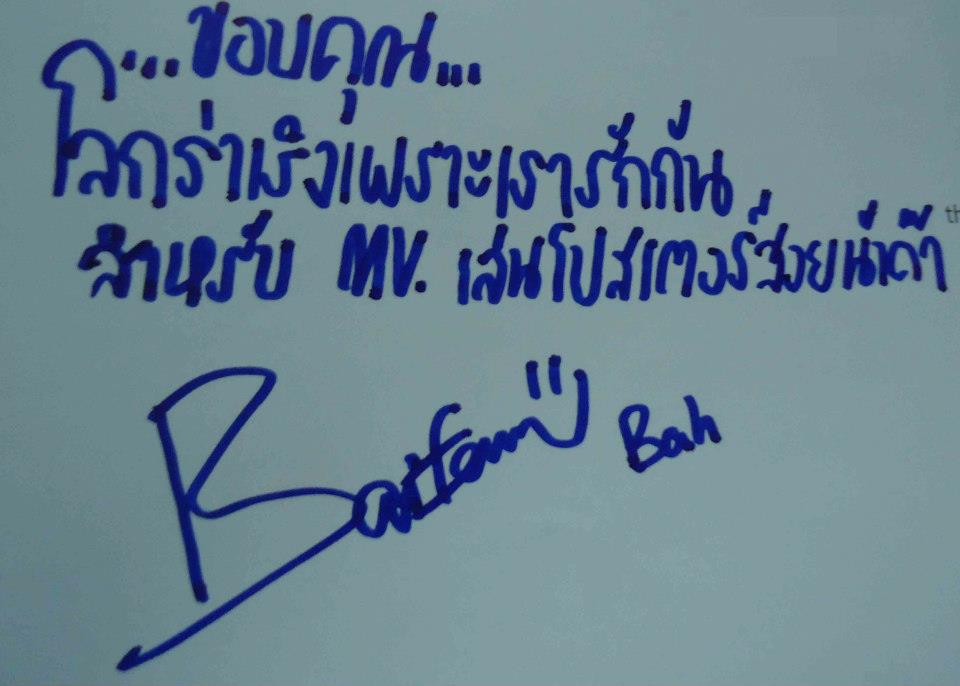 ...ขอบคุณ...
โลกร่าเริงเพราะเรารักกัน
สำหรับ MV. เส้นโปสเตอร์สวยน้าค้า
th
Bah